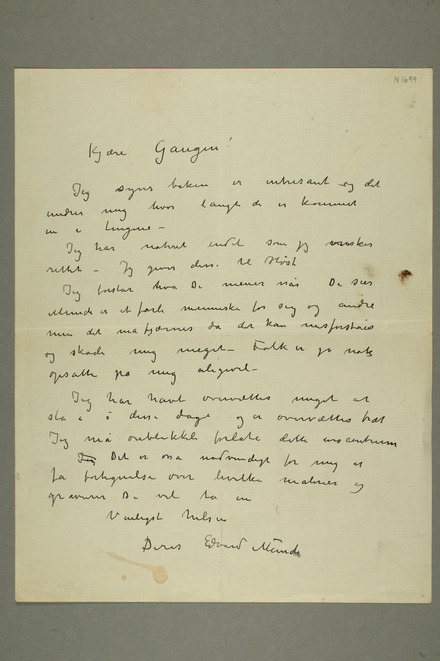 N 1699
Kjære Gaugin!
Jeg synes boken er interesant og det
undrer mig hvor langt de er kommet
in i tingene –
Jeg har noteret endel som jeg ønsker
rettet – Jeg giver disse til Høst
Jeg forstår hva De mener når De sier
Munch er et farlig menneske for sig og andre
men det må fjernes da det kan misforståes
og skade mig meget – Folk er jo nok
opsatte på mig aligevel –
Jeg har havt overvættes meget at
stå i i disse dage og er overvættes træt
Jeg må øieblikkelig forlate dette
Det er også nødvendigt for mig at
få fortegnelse over hvilke malerier og
gravurer De vil ta in
Venligst hilsen
Deres Edvard Munch